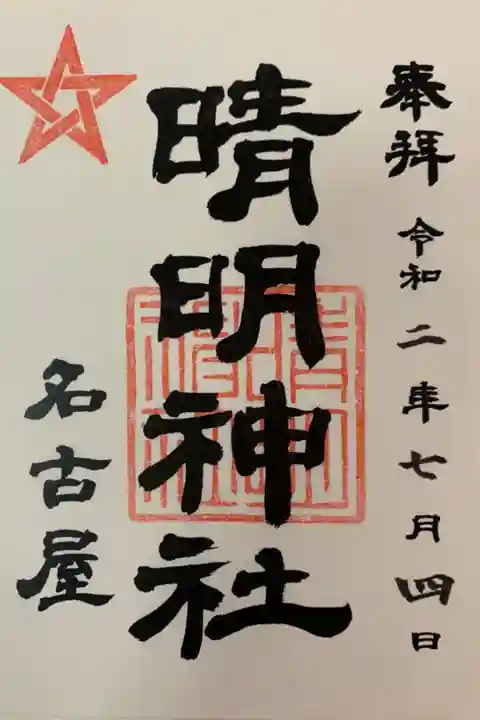 奉拝 令和二年七月四日
晴明神社
名古屋
晴明
神社